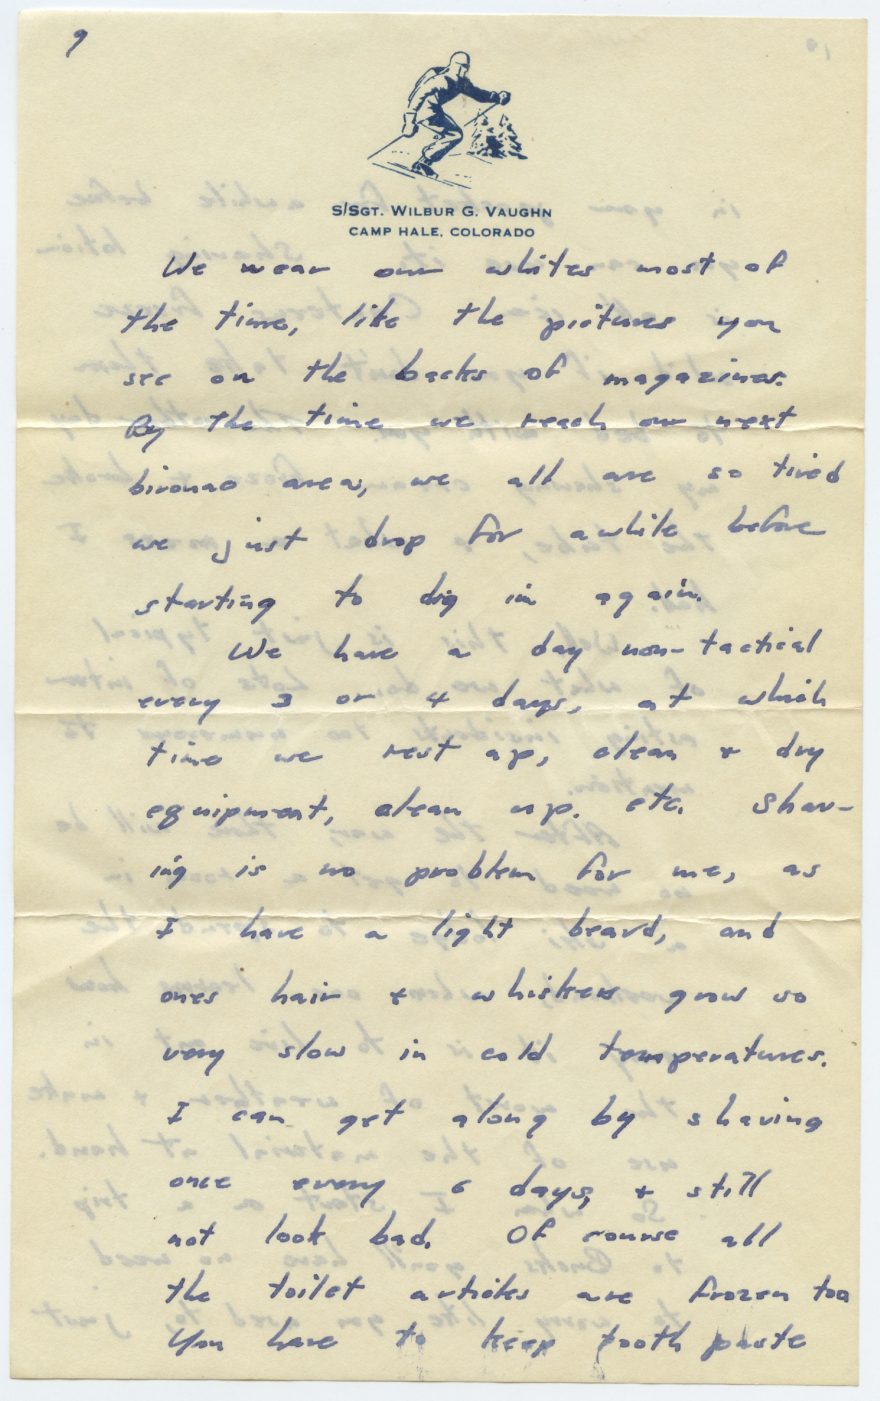 9
S/SGT. WILBUR G. VAUGHN
CAMP HALE, COLORADO
We wear our whites most of
the time, like the pictures you
see on the backs of magazines.
By the time we reach our next
bivouac area, we all are so tired
we just drop for awhile before
starting to dig in again.
We have a day non-tactical
every 3 or 4 days, at which
time we rest up, clean + dry
equipment, clean up. etc. Shav-
ing is no problem for me, as
I have a light beard, and
ones hair + whiskers grow so
very slow in cold temperatures.
I can get along by shaving
once every 6 days, + still
not look bad. Of course all
the toilet articles are frozen too
You have to keep tooth paste